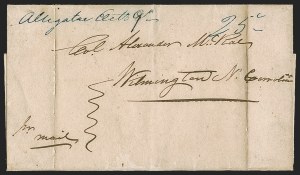 Alligator Oct 9th 25
Col. Alexander McRae
Wilmington N. Carolina
per
mail